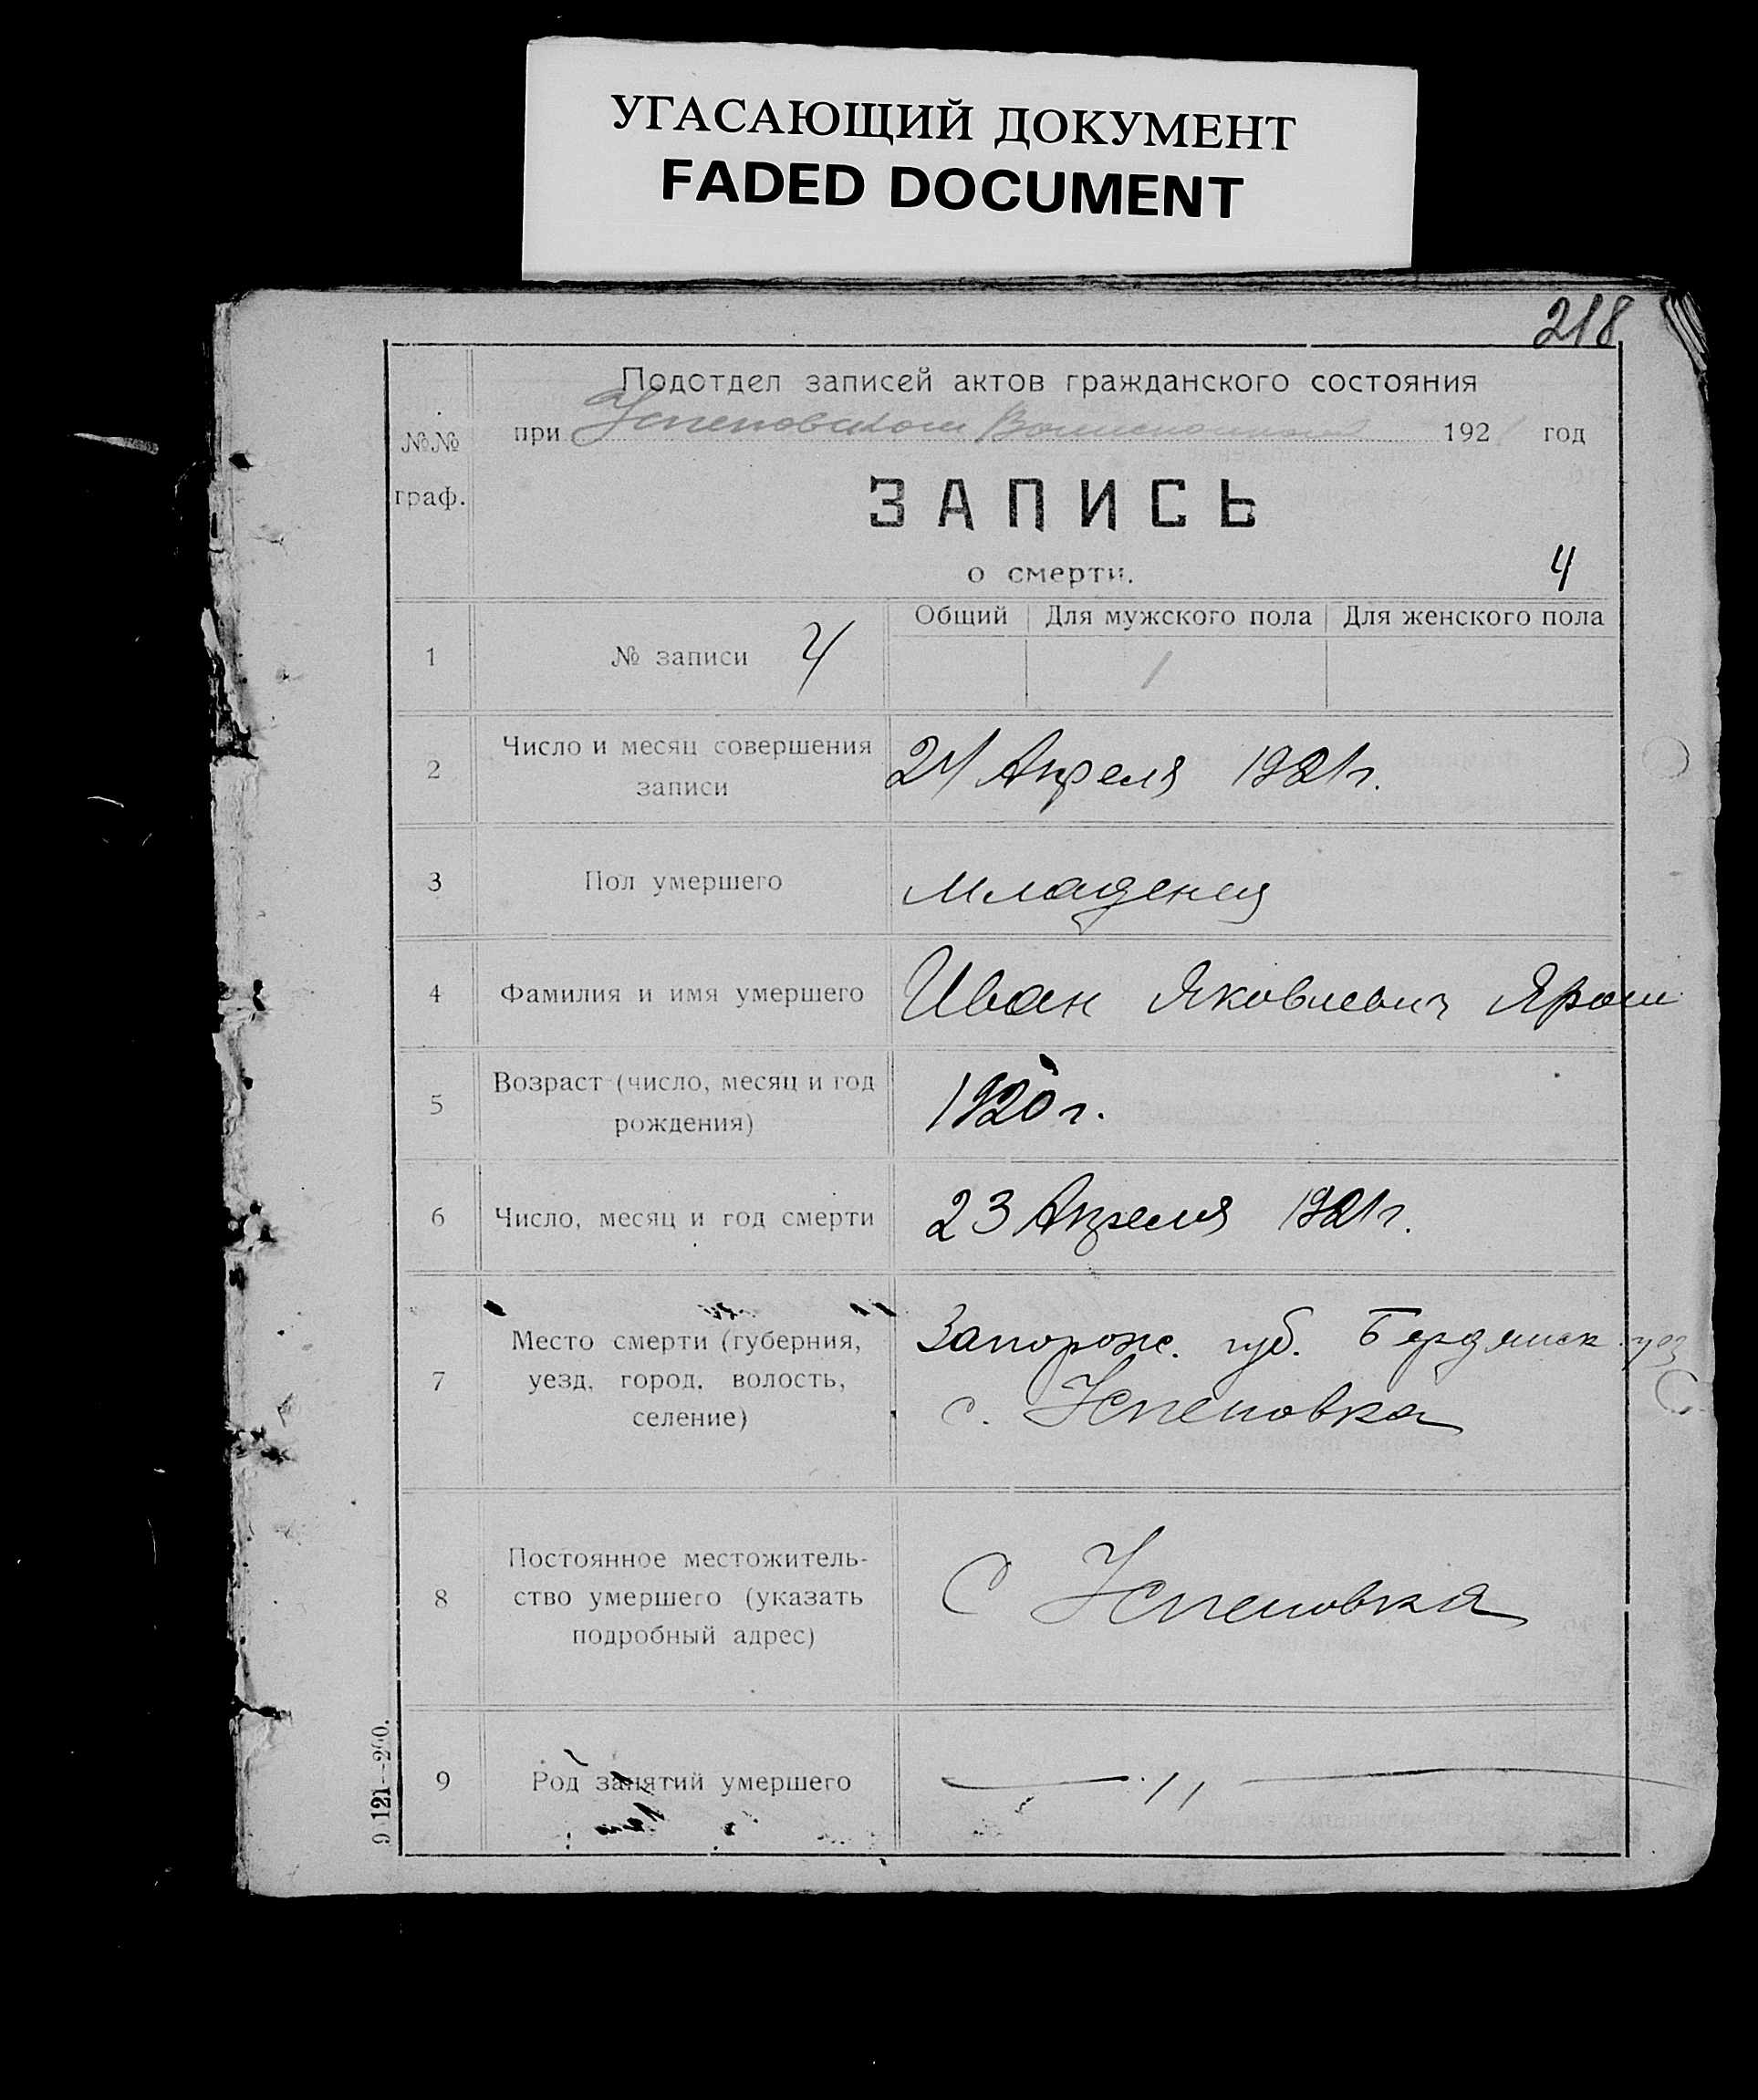 УГАСАЮЩИЙ ДОКУМЕНТ
FADED DOCUMENT
218
Подотдел записей актов гражданского состояния
№№ граф.
при 192 год
ЗАПИСЬ
о смерти.
4
Общий Для мужского пола Для женского пола
1 № записи 4 1
2 Число и месяц совершения записи
24 Апреля 1921 г.
3 Пол умершего
младенец
4 Фамилия и имя умершего
Иван Яковлевич Ярош
5 Возраст (число, месяц и год рождения)
1920 г.
6 Число, месяц и год смерти
23 Апреля 1921 г.
7 Место смерти (губерния,
уезд, город, волость,
селение)
Запорож. губ. Бердянск. уез
с. Успеновка
8 Постоянное местожитель-
ство умершего (указать
подробный адрес)
С Успеновка
9 Род занятий умершего
— 11 —